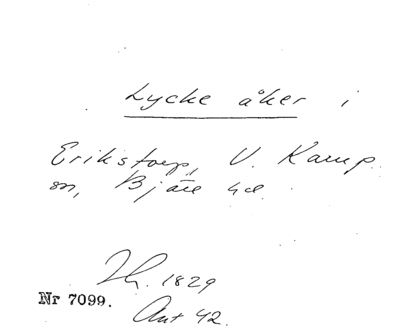 Lycke åker i
Erikstorp, V. Karup
sn, Bjäre hd.
Th. 1829
Nr 7099.
Ant 42.